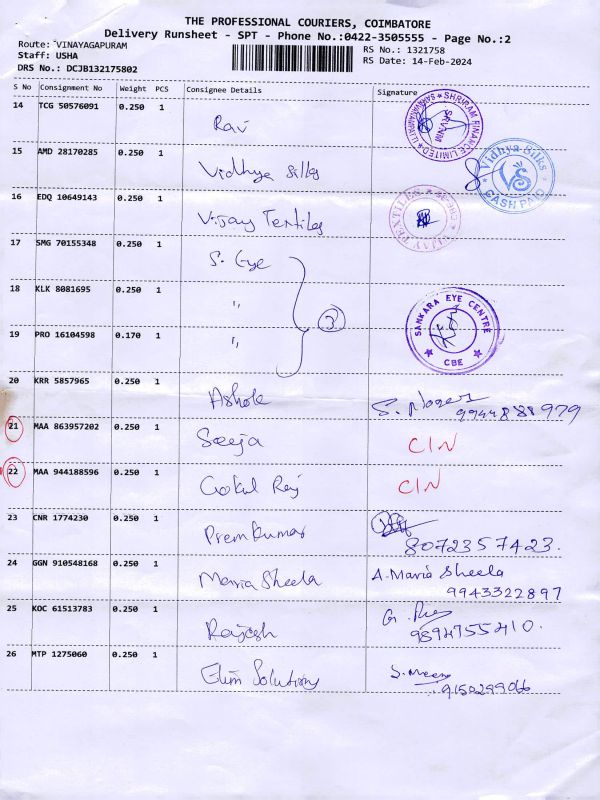 THE PROFESSIONAL COURIERS, COIMBATORE
Delivery Runsheet - SPT - Phone No.:0422-3505555 - Page No.:2
Route: VINAYAGAPURAM
Staff: USHA
DRS No.: DCJB132175802
RS No.: 1321758
RS Date: 14-Feb-2024
S No Consignment No Weight PCS Consignee Details Signature
14 TCG 50576091 0.250 1 Ravi
SHRIRAM FINANCE LIMITED
15 AMD 28170285 0.250 1 Vidhya Silks
Vidhya Silks
VS
CASH PAID
16 EDQ 10649143 0.250 1 Vijay Textiles
VIJAY TEXTILES
17 SMG 70155348 0.250 1 S. Eye
18 KLK 8081695 0.250 1 "
3
19 PRO 16104598 0.170 1 "
SANKARA EYE CENTRE
CBE
20 KRR 5857965 0.250 1 Ashok
9944888979
21 MAA 863957202 0.250 1 Seeja CIN
22 MAA 944188596 0.250 1 Gokul Raj CIN
23 CNR 1774230 0.250 1 Premkumar
8072357423.
24 GGN 910548168 0.250 1 Maria Sheela A. Maria Sheela
9943322897
25 KOC 61513783 0.250 1 Rajesh
9894755410.
26 MTP 1275060 0.250 1 Elim Solutions
9150299066